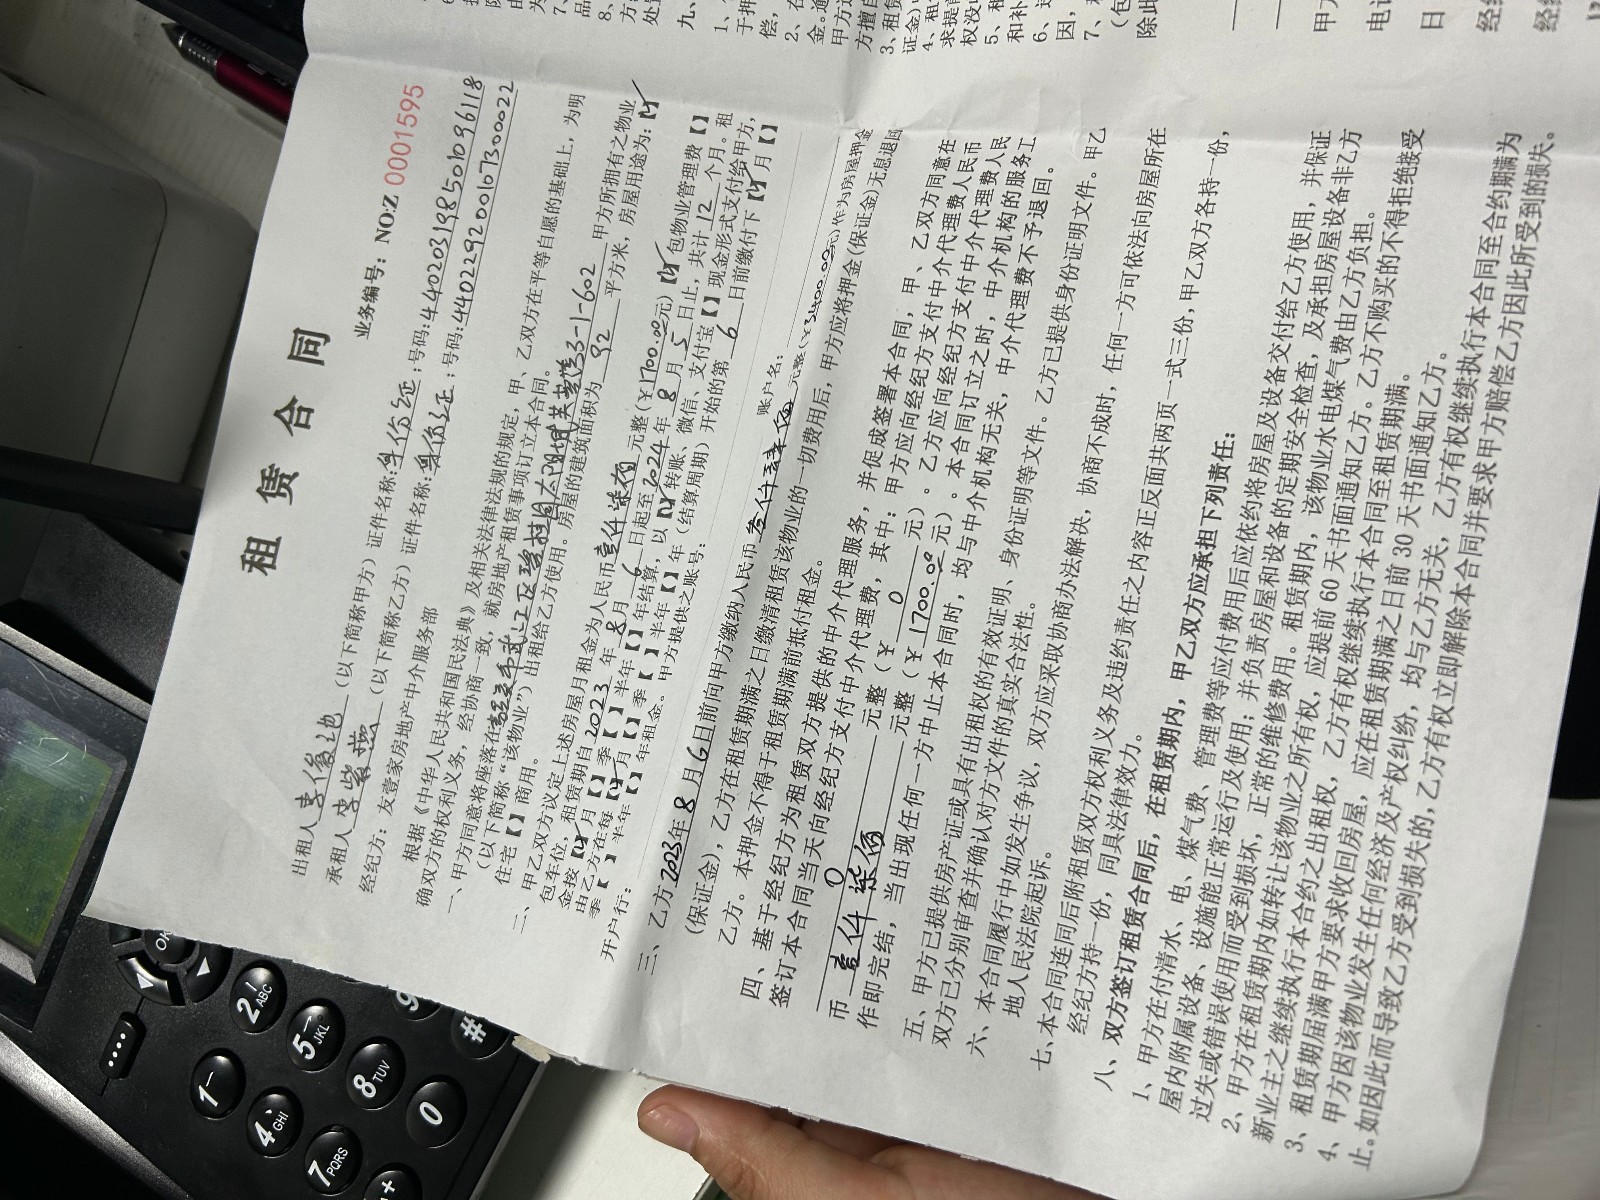 租赁合同
业务编号：NO:Z 0001595
出租人 （以下简称甲方）证件名称：身份证；号码：440203198501096118
承租人 李紫燕（以下简称乙方）证件名称：身份证；号码：440229200107300022
经纪方：友壹家房地产中介服务部
根据《中华人民共和国民法典》及相关法律法规的规定，甲、乙双方在平等自愿的基础上，为明
确双方的权利义务，经协商一致，就房地产租赁事项订立本合同。
一、甲方同意将坐落在 市武江区 3-1-602 甲方所拥有之物业
（以下简称“该物业”）出租给乙方使用。房屋的建筑面积为 92 平方米，房屋用途为：【✓】
住宅【 】商用。
二、甲乙双方议定上述房屋月租金为人民币壹仟柒佰元整（￥1700.00元）【✓】包物业管理费【 】
包车位，租赁期自2023年8月6日起至2024年8月5日止，共计12个月。租
金按【✓】月【 】季【 】半年【 】年结算，以【✓】转账、微信、支付宝【 】现金形式支付给甲方，
由乙方在每【✓】月【 】季【 】半年【 】年（结算周期）开始的第 6 日前缴付下【✓】月【 】
季【 】半年【 】年租金。甲方提供之账号：
开户行： 账户名：
三、乙方2023年8月6日前向甲方缴纳人民币叁仟肆佰元整（￥3400.00元）作为房屋押金
（保证金），乙方在租赁期满之日缴清租赁该物业的一切费用后，甲方应将押金（保证金）无息退回
乙方。本押金不得于租赁期满前抵付租金。
四、基于经纪方为租赁双方提供的中介代理服务，并促成签署本合同，甲、乙双方同意在
签订本合同当天向经纪方支付中介代理费，其中：甲方应向经纪方支付中介代理费人民币
0 元整（￥0元）。乙方应向经纪方支付中介代理费人民
币 壹仟柒佰 元整（￥1700.00元）。本合同订立之时，中介机构的服务工
作即完结，当出现任何一方中止本合同时，均与中介机构无关，中介代理费不予退回。
五、甲方已提供房产证或具有出租权的有效证明、身份证明等文件。乙方已提供身份证明文件。甲乙
双方已分别审查并确认对方文件的真实合法性。
六、本合同履行中如发生争议，双方应采取协商办法解决，协商不成时，任何一方可依法向房屋所在
地人民法院起诉。
七、本合同连同后附租赁双方权利义务及违约责任之内容正反面共两页一式三份，甲乙双方各持一份，
经纪方持一份，同具法律效力。
八、双方签订租赁合同后，在租赁期内，甲乙双方应承担下列责任：
1、甲方在付清水、电、煤气费、管理费等应付费用后应依约将房屋及设备交付给乙方使用，并保证
屋内附属设备、设施能正常运行及使用；并负责房屋和设备的定期安全检查，及承担房屋设备非乙方
过失或错误使用而受到损坏，正常的维修费用。租赁期内，该物业水电煤气费由乙方负担。
2、甲方在租赁期内如转让该物业之所有权，应提前 60 天书面通知乙方。乙方不购买的不得拒绝接受
新业主之继续执行本合约之出租权，乙方有权继续执行本合同至租赁期满。
3、租赁期届满甲方要求收回房屋，应在租赁期满之日前 30 天书面通知乙方。
4、甲方因该物业发生任何经济及产权纠纷，均与乙方无关，乙方有权继续执行本合同至合约期满为
止。如因此而导致乙方受到损失的，乙方有权立即解除本合同并要求甲方赔偿乙方因此所受到的损失。